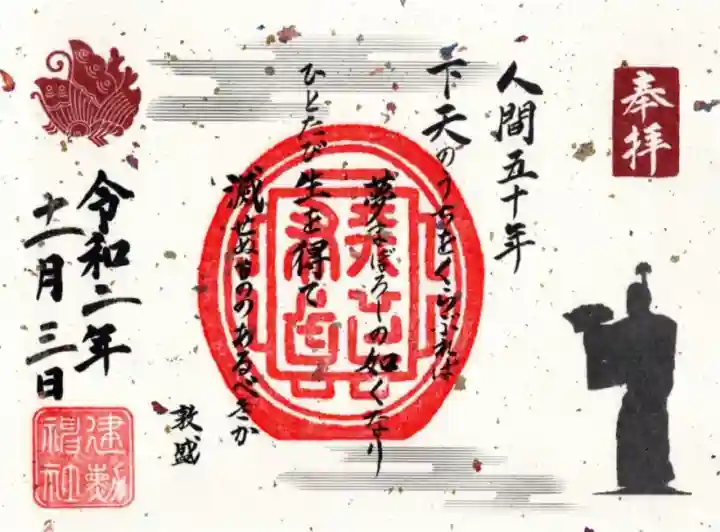 奉拝
人間五十年
下天のうちをくらぶれば
夢まぼろしの如くなり
ひとたび生を得て
滅せぬもののあるべきか
敦盛
令和二年
十一月三日
建勲
神社